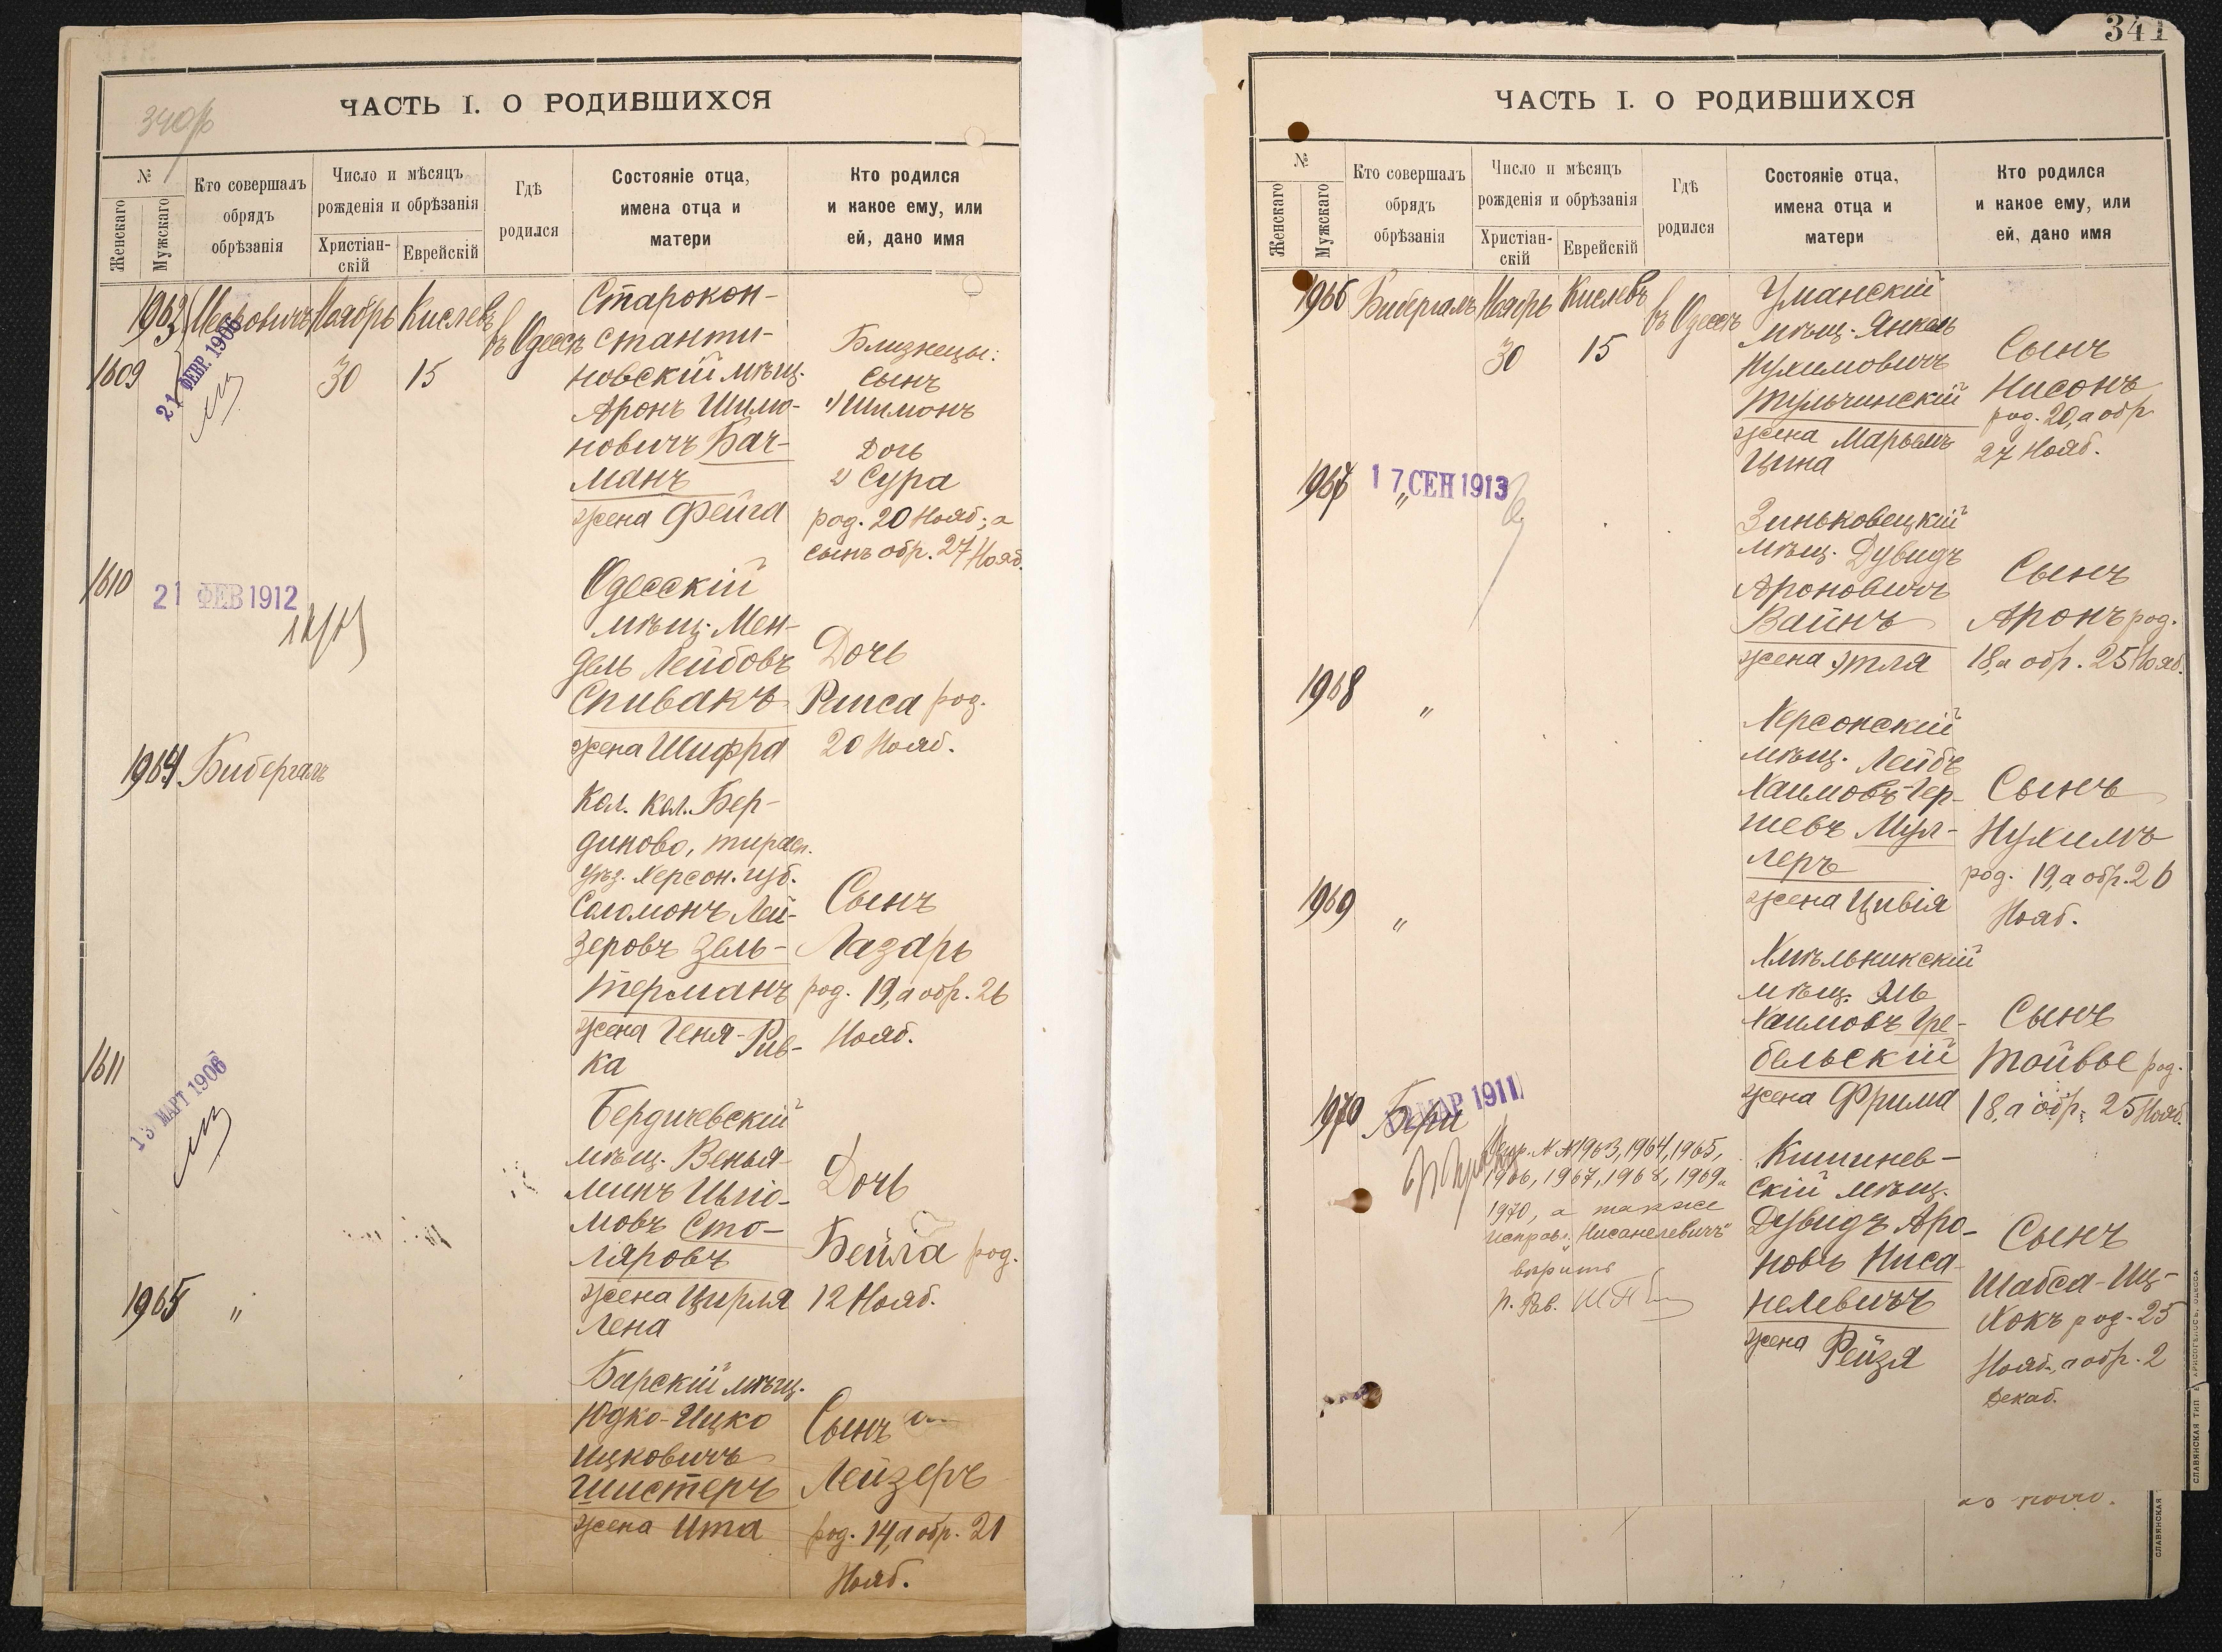 340 об
ЧАСТЬ I. О РОДИВШИХСЯ
№
Женскаго
Мужскаго
Кто совершалъ
обрядъ
обрѣзанія
Число и мѣсяцъ
рожденія и обрѣзанія
Христіан-
скій
Еврейскій
Гдѣ
родился
Состояніе отца,
имена отца и
матери
Кто родился
и какое ему, или
ей, дано имя
1963
1609
21 ФЕВР. 1906
Ноябрь
30
Кислевъ
15
въ Одессѣ
Старокон-
станти-
новскій мѣщ.
Аронъ Шимо-
новичъ Бач-
манъ
жена Фейга
Близнецы:
Сынъ
1) Шимонъ
Дочь
2) Сура
род. 20 Нояб; а
сынъ обр. 27 Нояб.
1610
21 ФЕВ 1912
Одесскій
мѣщ. Мен-
дель Лейбовъ
Спивакъ
жена Шифра
Дочь
Раиса род.
20 Нояб.
1964
Бибергалъ
Кол. кол. Бер-
диново, тирасп.
уѣз. Херсон. губ.
Соломонъ Лей-
зеровъ Зель-
терманъ
жена Геня-Рив-
ка
Сынъ
Лазарь
род. 19, а обр. 26
Нояб.
1611
13 МАРТ 1906
Бердичевскій
мѣщ. Венья-
минъ
мовъ Сто-
ляровъ
жена Цирля
Лена
Дочь
Бейла род.
12 Нояб.
1965
"
Барскій мѣщ.
Юдко-Ицко
Ицковичъ
Шистеръ
жена Ита
Сынъ
Лейзеръ
род. 14, а обр. 21
Нояб.
341
ЧАСТЬ I. О РОДИВШИХСЯ
№
Женскаго
Мужскаго
Кто совершалъ
обрядъ
обрѣзанія
Число и мѣсяцъ
рожденія и обрѣзанія
Христіан-
скій
Еврейскій
Гдѣ
родился
Состояніе отца,
имена отца и
матери
Кто родился
и какое ему, или
ей, дано имя
1966
Бибергалъ
Ноябрь
30
Кислевъ
15
въ Одессѣ
Уманскій
мѣщ. Янкель
Нухимовичъ
Тульчинскій
жена Марьемъ
Цина
Сынъ
Нисонъ
род. 20, а обр
27 Нояб.
1967
"
17 СЕН 1913
Зиньковецкій
мѣщ. Дувидъ
Ароновичъ
Вайнъ
жена Этля
Сынъ
Аронъ род.
18, а обр. 25 Нояб.
1968
"
Херсонскій
мѣщ. Лейбъ
Хаимовъ-Гер-
шевъ Мул-
леръ
жена Цивія
Сынъ
Нухимъ
род. 19, а обр. 26
Нояб.
1969
"
Хмѣльникскій
мѣщ. Эль
Хаимовъ Гре-
бельскій
жена Фрима
Сынъ
Тойвье род.
18, а обр. 25 Нояб.
1970
МАР 1911
Испр. №№ 1963, 1964, 1965,
1966, 1967, 1968, 1969 и
1970, а также
исправ. "Нисанелевичъ"
вѣрить
Кишинев-
скій мѣщ.
Дувидъ Аро-
новъ Ниса-
нелевичъ
жена Рейзя
Сынъ
Шабса-Иц-
хокъ род. 25
Нояб., а обр. 2
Декаб.